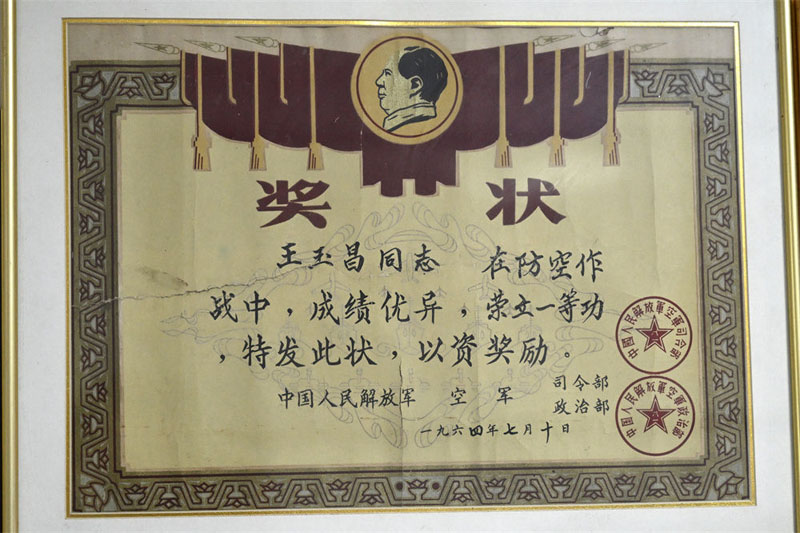 奖状
王玉昌同志 在防空作
战中，成绩优异，荣立一等功
，特发此状，以资奖励。
中国人民解放军 空军 司令部
政治部
一九六四年七月十日
中國人民解放軍空軍司令部
中國人民解放軍空軍政治部